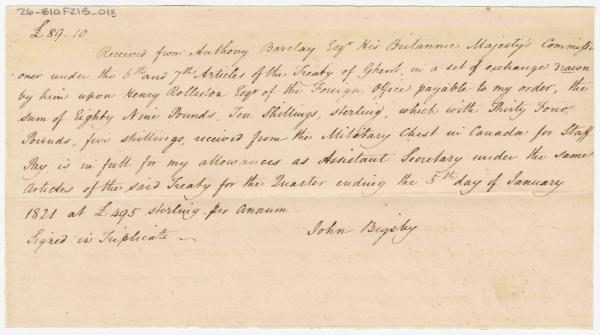 26-B10F21B-013
£89.10
Received from Anthony Barclay Esqr His Britannic Majesty's Commissi
oner under the 6th and 7th Articles of the Treaty of Ghent, in a set of exchange drawn
by him upon Henry Rolleston Esqr of the Foreign Office payable to my order, the
sum of Eighty Nine Pounds, Ten Shillings, sterling, which with Thirty Four
Pounds, five shillings, received from the Military Chest in Canada for Staff
Pay is in full for my allowances as Assistant Secretary under the same
Articles of the said Treaty for the Quarter ending the 5th day of January
1821 at £495 sterling per Annum
Signed in Triplicate
John Bigsby